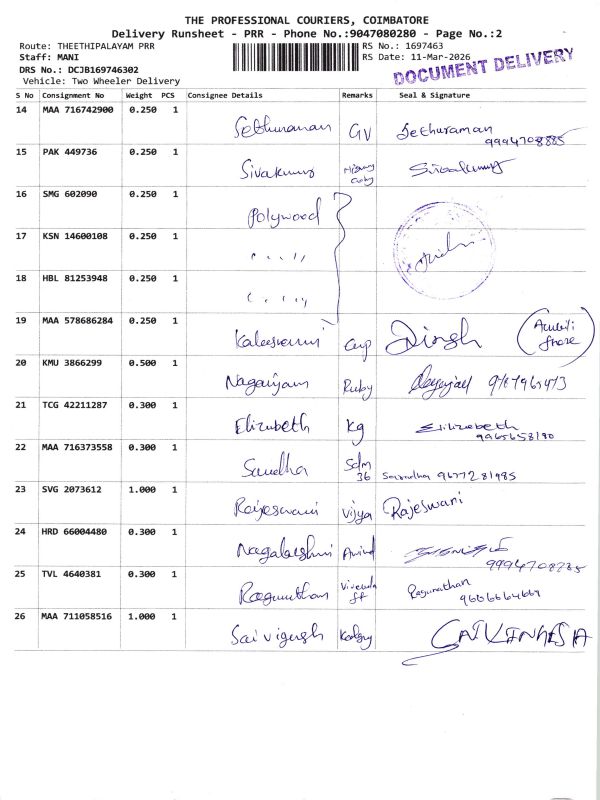 THE PROFESSIONAL COURIERS, COIMBATORE
Delivery Runsheet - PRR - Phone No.:9047080280 - Page No.:2
Route: THEETHIPALAYAM PRR
Staff: MANI
DRS No.: DCJB169746302
Vehicle: Two Wheeler Delivery
RS No.: 1697463
RS Date: 11-Mar-2026
DOCUMENT DELIVERY
S No Consignment No Weight PCS Consignee Details Remarks Seal & Signature
14 MAA 716742900 0.250 1 Sethuraman GV Sethuraman
9994708885
15 PAK 449736 0.250 1 Sivakumar Sivakumar
16 SMG 602090 0.250 1 Polywood
17 KSN 14600108 0.250 1
18 HBL 81253948 0.250 1
19 MAA 578686284 0.250 1 Kaleeswari Singh
20 KMU 3866299 0.500 1 Nagarajan Ruby
21 TCG 42211287 0.300 1 Elizabeth Kg Elizabeth
22 MAA 716373558 0.300 1 Sandha Sdm
36
23 SVG 2073612 1.000 1 Rajeswari Vijya Rajeswari
24 HRD 66004480 0.300 1 Nagalakshmi Arvind
25 TVL 4640381 0.300 1 Ragunathan Ragunathan
9666664669
26 MAA 711058516 1.000 1 Saivignesh SAIVIGNESH